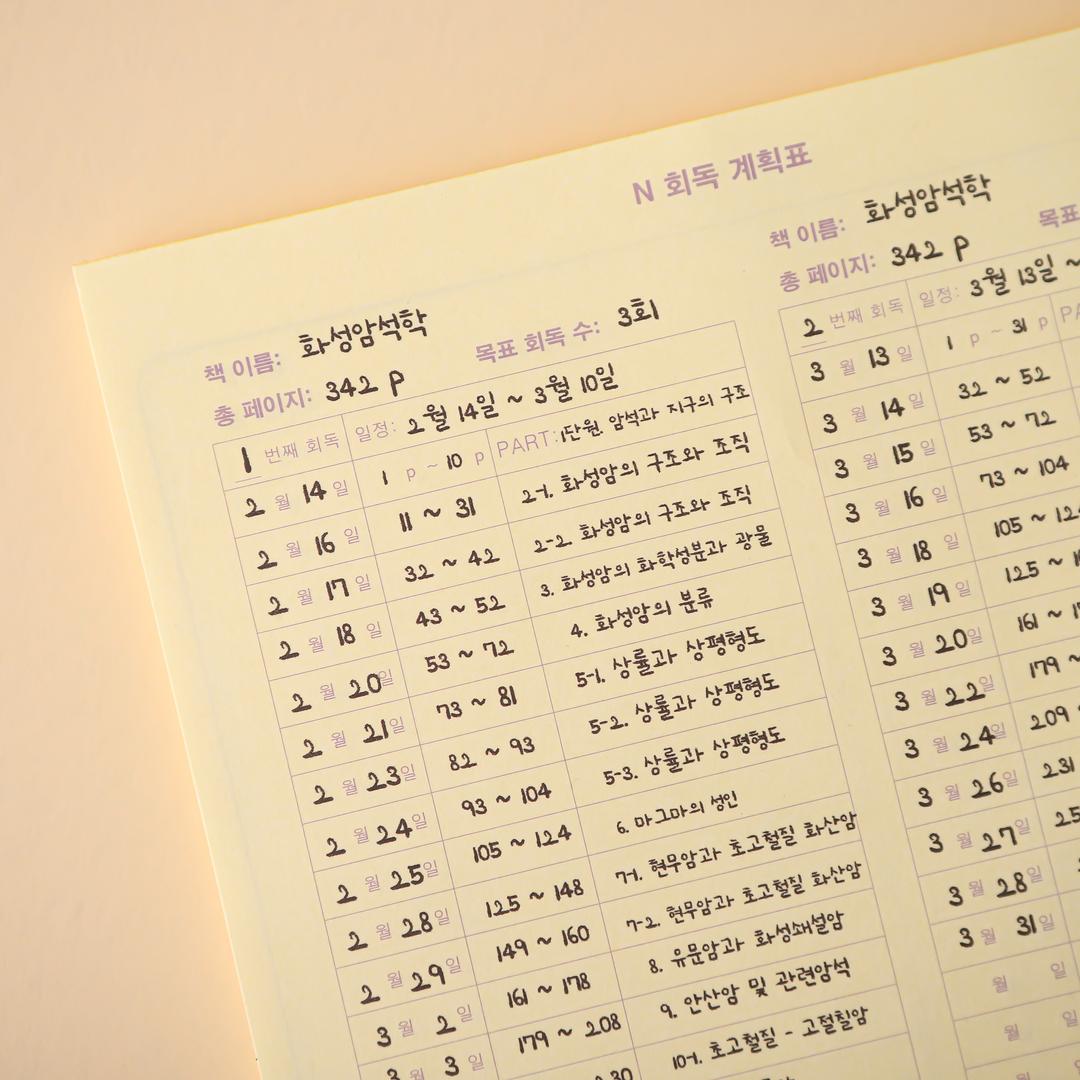 N 회독 계획표
책 이름: 화성암석학
총 페이지: 342 p 목표 회독 수: 3회
1 번째 회독 일정: 2월 14일 ~ 3월 10일
2 월 14 일 1 p ~ 10 p PART: 1단원. 암석과 지구의 구조
2 월 16 일 11 ~ 31 2-1. 화성암의 구조와 조직
2 월 17 일 32 ~ 42 2-2. 화성암의 구조와 조직
2 월 18 일 43 ~ 52 3. 화성암의 화학성분과 광물
2 월 20일 53 ~ 72 4. 화성암의 분류
2 월 21일 73 ~ 81 5-1. 상률과 상평형도
2 월 23일 82 ~ 93 5-2. 상률과 상평형도
2 월 24일 93 ~ 104 5-3. 상률과 상평형도
2 월 25일 105 ~ 124 6. 마그마의 성인
2 월 28일 125 ~ 148 7-1. 현무암과 초고철질 화산암
2 월 29일 149 ~ 160 7-2. 현무암과 초고철질 화산암
3 월 2 일 161 ~ 178 8. 유문암과 화성쇄설암
3 월 3 일 179 ~ 208 9. 안산암 및 관련암석
10-1. 초고철질 - 고절칠암
책 이름: 화성암석학
총 페이지: 342 p 목표
2 번째 회독 일정: 3월 13일 ~
3 월 13 일 1 p ~ 31 p
3 월 14 일 32 ~ 52
3 월 15 일 53 ~ 72
3 월 16 일 73 ~ 104
3 월 18 일 105 ~
3 월 19 일 125 ~
3 월 20일 161 ~
3 월 22일 179 ~
3 월 24일 209
3 월 26일 231
3 월 27일
3 월 28일
3 월 31일
월 일
월 일